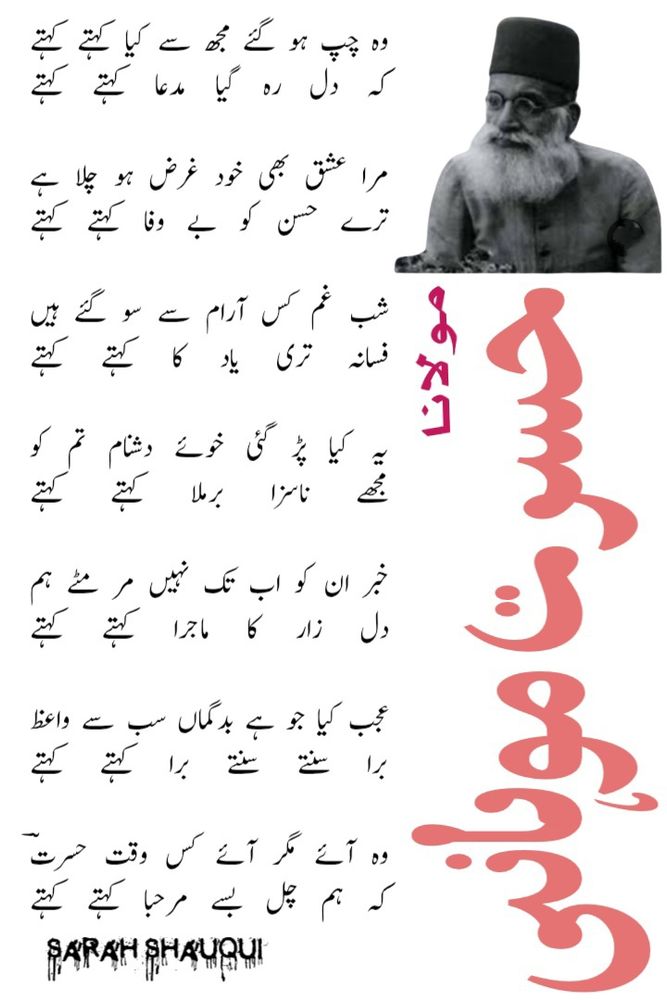 وہ چپ ہو گئے مجھ سے کیا کہتے کہتے
کہ دل رہ گیا مدعا کہتے کہتے
مرا عشق بھی خود غرض ہو چلا ہے
ترے حسن کو بے وفا کہتے کہتے
شب غم کس آرام سے سو گئے ہیں
فسانہ تری یاد کا کہتے کہتے
یہ کیا پڑ گئی خوئے دشنام تم کو
مجھے ناسزا برملا کہتے کہتے
خبر ان کو اب تک نہیں مر مٹے ہم
دل زار کا ماجرا کہتے کہتے
عجب کیا جو ہے بدگماں سب سے واعظ
برا سنتے سنتے برا کہتے کہتے
وہ آئے مگر آئے کس وقت حسرتؔ
کہ ہم چل بسے مرحبا کہتے کہتے
مولانا
حسرت موہانی
SARAH SHAUQUI